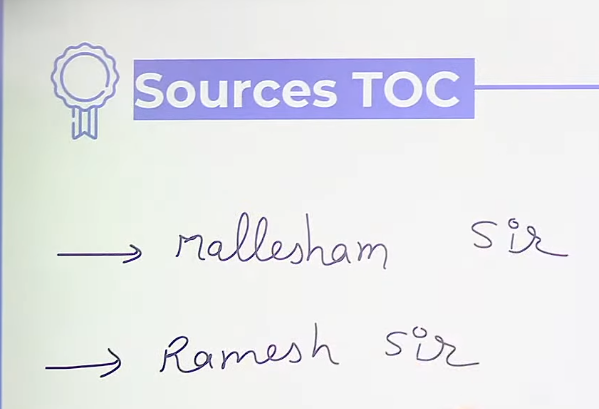 Sources TOC
→ Mallesham Sir
→ Ramesh Sir